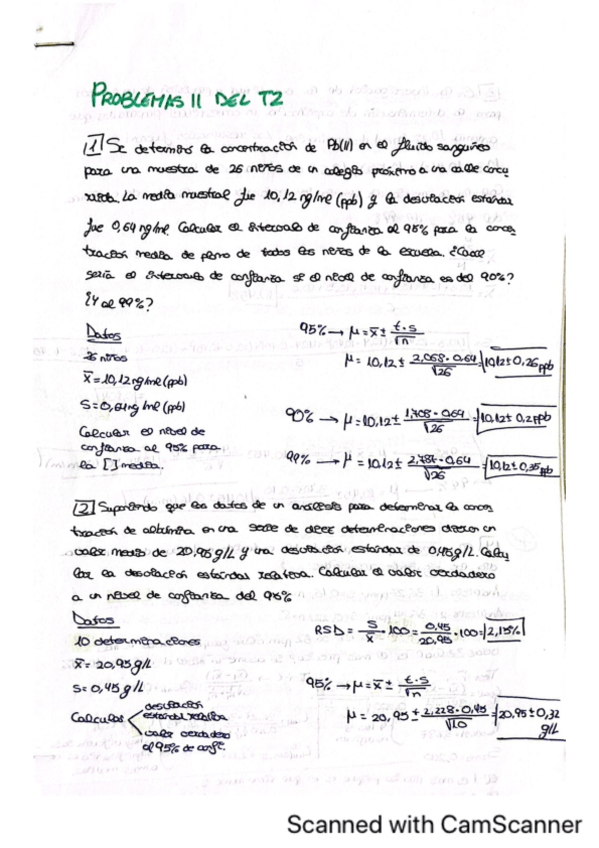 PROBLEMAS II DEL T2
1 Se determinó la concentración de Pb(II) en el fluido sanguíneo
para una muestra de 26 niños de un colegio próximo a una calle concu
rrida. La media muestral fue 10,12 ng/ml (ppb) y la desviación estándar
fue 0,64 ng/ml. Calcular el intervalo de confianza al 95% para la concen
tración media de plomo de todos los niños de la escuela. ¿Cuál
sería el intervalo de confianza si el nivel de confianza es del 90%?
¿Y al 99%?
Datos
26 niños
x̄ = 10,12 ng/ml (ppb)
S = 0,64 ng/ml (ppb)
Calcular el nivel de
confianza al 95% para
la [ ] media.
95% → μ = x̄ ± t·s/√n
μ = 10,12 ± 2,068·0,64/√26 = 10,12 ± 0,26 ppb
90% → μ = 10,12 ± 1,708·0,64/√26 = 10,12 ± 0,2 ppb
99% → μ = 10,12 ± 2,787·0,64/√26 = 10,12 ± 0,35 ppb
2 Suponiendo que los datos de un análisis para determinar la concen
tración de albúmina en una serie de diez determinaciones dieron un
valor medio de 20,95 g/L y una desviación estándar de 0,45 g/L. Calcu
lar la desviación estándar relativa. Calcular el valor verdadero
a un nivel de confianza del 95%
Datos
10 determinaciones
x̄ = 20,95 g/L
S = 0,45 g/L
Calcular desviación estándar relativa
valor verdadero al 95% de confª.
RSD = S/x̄ · 100 = 0,45/20,95 · 100 = 2,15%
95% → μ = x̄ ± t·s/√n
μ = 20,95 ± 2,228·0,45/√10 = 20,95 ± 0,32 g/L
Scanned with CamScanner